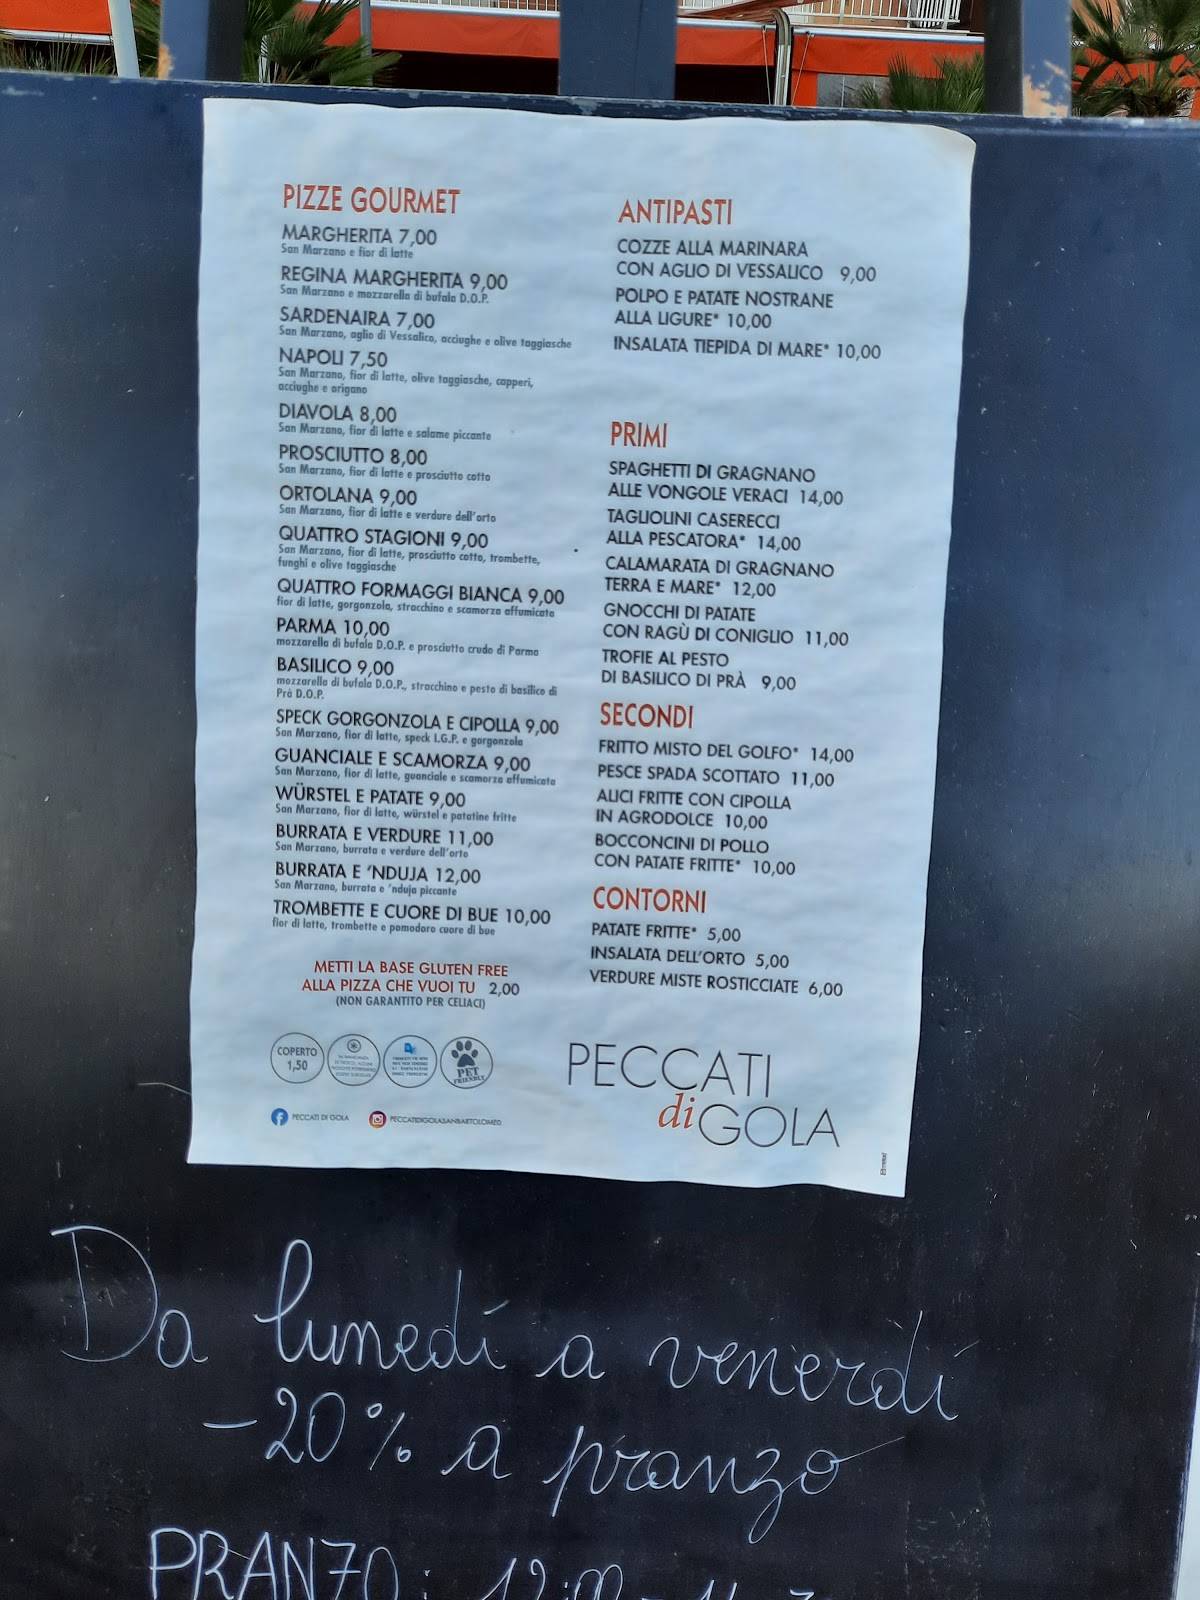 PIZZE GOURMET
MARGHERITA 7,00
San Marzano e fior di latte
REGINA MARGHERITA 9,00
San Marzano e mozzarella di bufala D.O.P.
SARDENAIRA 7,00
San Marzano, aglio di Vessalico, acciughe e olive taggiasche
NAPOLI 7,50
San Marzano, fior di latte, olive taggiasche, capperi,
acciughe e origano
DIAVOLA 8,00
San Marzano, fior di latte e salame piccante
PROSCIUTTO 8,00
San Marzano, fior di latte e prosciutto cotto
ORTOLANA 9,00
San Marzano, fior di latte e verdure dell'orto
QUATTRO STAGIONI 9,00
San Marzano, fior di latte, prosciutto cotto, trombette,
funghi e olive taggiasche
QUATTRO FORMAGGI BIANCA 9,00
fior di latte, gorgonzola, stracchino e scamorza affumicata
PARMA 10,00
mozzarella di bufala D.O.P. e prosciutto crudo di Parma
BASILICO 9,00
mozzarella di bufala D.O.P., stracchino e pesto di basilico di
Prà D.O.P.
SPECK GORGONZOLA E CIPOLLA 9,00
San Marzano, fior di latte, speck I.G.P. e gorgonzola
GUANCIALE E SCAMORZA 9,00
San Marzano, fior di latte, guanciale e scamorza affumicata
WÜRSTEL E PATATE 9,00
San Marzano, fior di latte, würstel e patatine fritte
BURRATA E VERDURE 11,00
San Marzano, burrata e verdure dell'orto
BURRATA E 'NDUJA 12,00
San Marzano, burrata e 'nduja piccante
TROMBETTE E CUORE DI BUE 10,00
fior di latte, trombette e pomodoro cuore di bue
METTI LA BASE GLUTEN FREE
ALLA PIZZA CHE VUOI TU 2,00
(NON GARANTITO PER CELIACI)
COPERTO
1,50
PET
FRIENDLY
PECCATI DI GOLA
PECCATIDIGOLASANBARTOLOMEO
ANTIPASTI
COZZE ALLA MARINARA
CON AGLIO DI VESSALICO 9,00
POLPO E PATATE NOSTRANE
ALLA LIGURE* 10,00
INSALATA TIEPIDA DI MARE* 10,00
PRIMI
SPAGHETTI DI GRAGNANO
ALLE VONGOLE VERACI 14,00
TAGLIOLINI CASERECCI
ALLA PESCATORA* 14,00
CALAMARATA DI GRAGNANO
TERRA E MARE* 12,00
GNOCCHI DI PATATE
CON RAGÙ DI CONIGLIO 11,00
TROFIE AL PESTO
DI BASILICO DI PRÀ 9,00
SECONDI
FRITTO MISTO DEL GOLFO* 14,00
PESCE SPADA SCOTTATO 11,00
ALICI FRITTE CON CIPOLLA
IN AGRODOLCE 10,00
BOCCONCINI DI POLLO
CON PATATE FRITTE* 10,00
CONTORNI
PATATE FRITTE* 5,00
INSALATA DELL'ORTO 5,00
VERDURE MISTE ROSTICCIATE 6,00
PECCATI
di GOLA
Da lunedí a venerdí
-20% a pranzo
PRANZO: 12:00 -